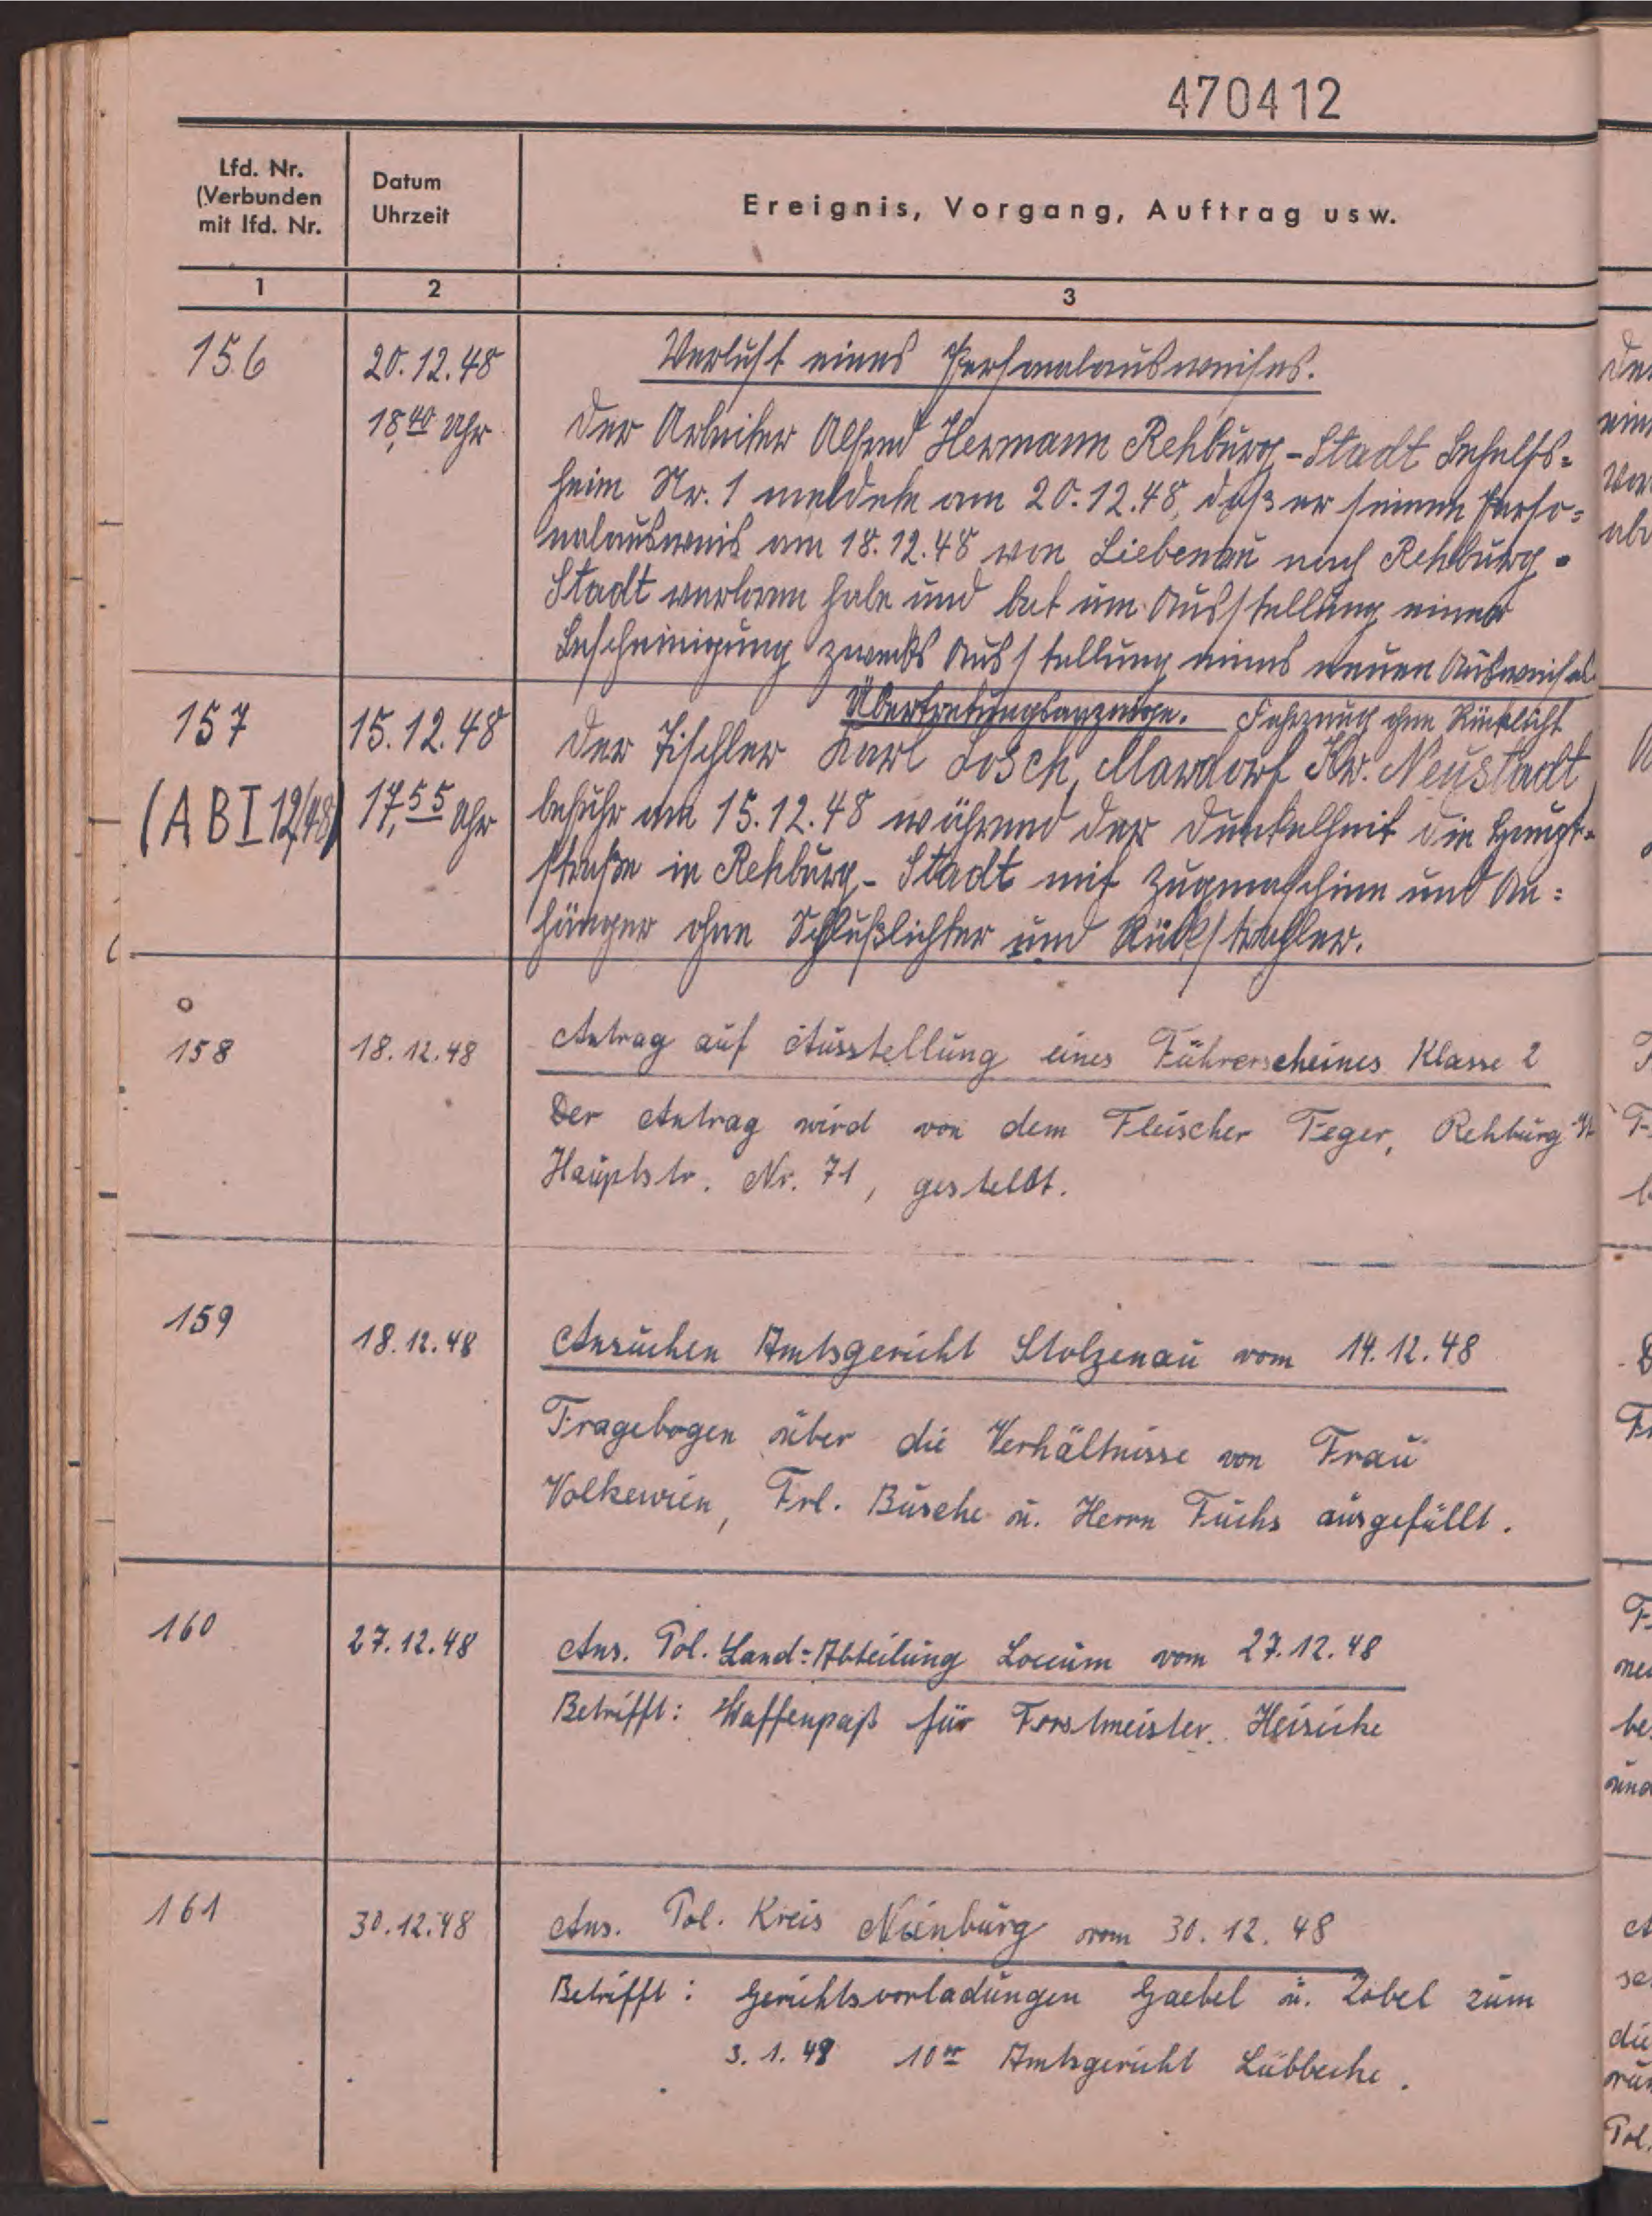 470412
Lfd. Nr.
(Verbunden
mit lfd. Nr.
Datum
Uhrzeit
Ereignis, Vorgang, Auftrag usw.
1
2
3
156
20.12.48
18,40 Uhr
Verlust eines Personalausweises.
Der Arbeiter Alfred Hermann Rehburg-Stadt Behelfs=
heim Nr. 1 meldete am 20.12.48, daß er seinen Perso=
nalausweis am 18.12.48 von Liebenau nach Rehburg-
Stadt verloren habe und bat um Ausstellung einer
Bescheinigung zwecks Ausstellung eines neuen Ausweises.
157
(A B I 12/48)
15.12.48
17,55 Uhr
Übertretungsanzeige. Fahrzeug ohne Rücklicht
Der Tischler Karl Losch, Mardorf Kr. Neustadt
befuhr am 15.12.48 während der Dunkelheit die Haupt=
straße in Rehburg-Stadt mit Zugmaschine und An=
hänger ohne Schlußlichter und Rückstrahler.
158
18.12.48
Antrag auf Ausstellung eines Führerscheines Klasse 2
Der Antrag wird von dem Fleischer Feger, Rehburg-St
Hauptstr. Nr. 71, gestellt.
159
18.12.48
Ansuchen Amtsgericht Stolzenau vom 14.12.48
Fragebogen über die Verhältnisse von Frau
Volkewien, Frl. Busche u. Herrn Fuchs ausgefüllt.
160
27.12.48
Ans. Pol. Land=Abteilung Loccum vom 27.12.48
Betrifft: Waffenpaß für Forstmeister Heinicke
161
30.12.48
Ans. Pol. Kreis Nienburg vom 30.12.48
Betrifft: Gerichtsvorladungen Gaebel u. Zobel zum
3.1.49 10°° Amtsgericht Lübbecke.